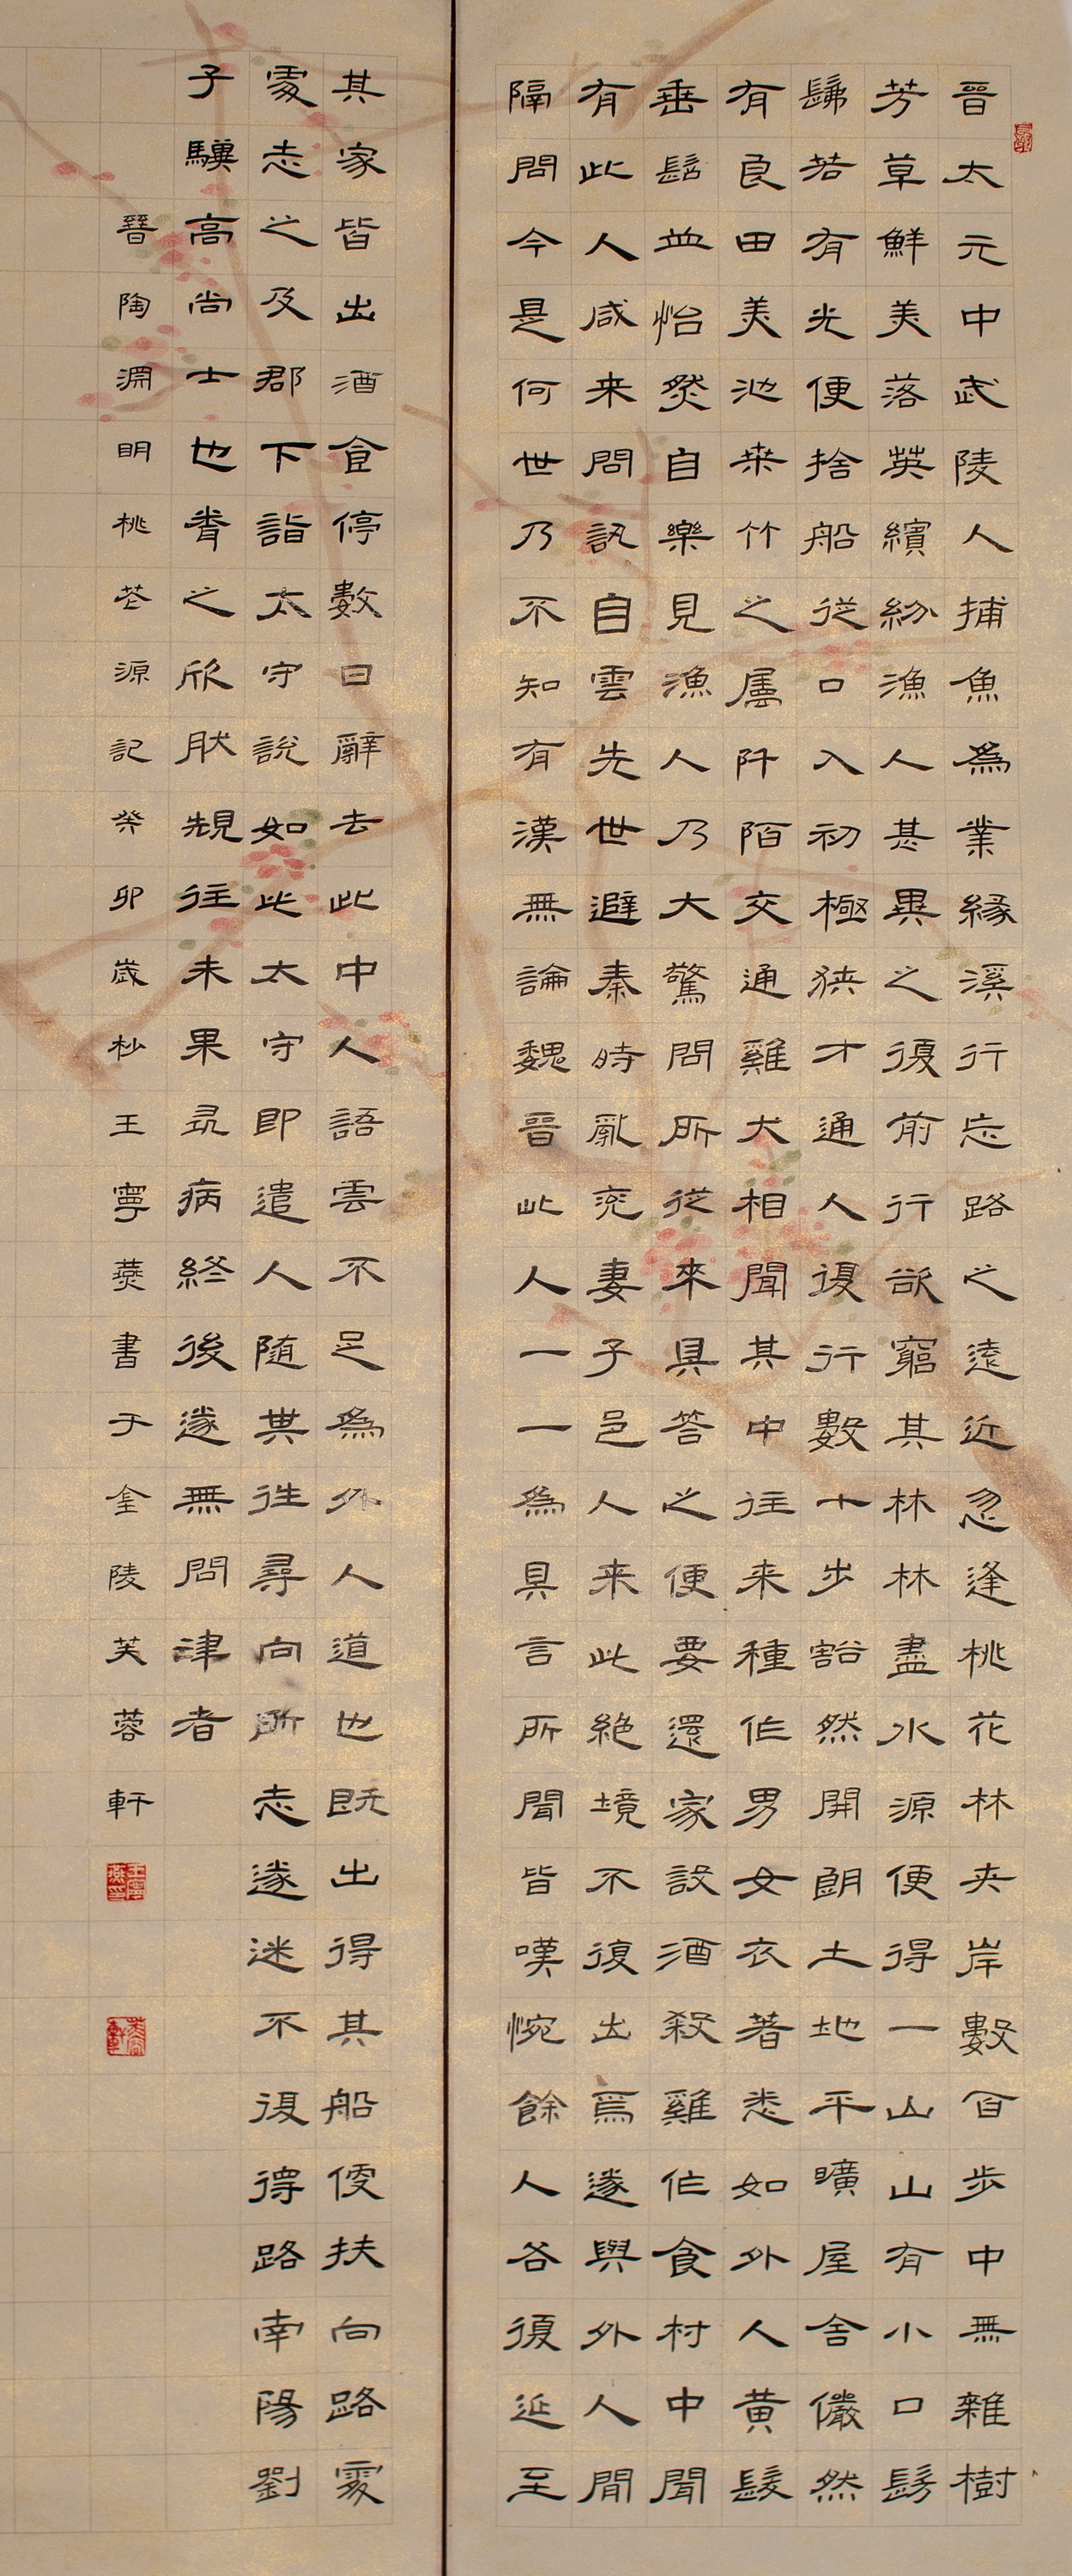 晉太元中武陵人捕魚為業緣溪行忘路之遠近忽逢桃花林夹岸數百步中無雜樹
芳草鮮美落英繽紛漁人甚異之復前行欲窮其林林盡水源便得一山山有小口髣
髴若有光便捨船從口入初極狹才通人復行數十步豁然開朗土地平曠屋舍儼然
有良田美池桒竹之属阡陌交通雞犬相聞其中往来種作男女衣著悉如外人黄髮
垂髫並怡然自樂見漁人乃大驚問所從來具答之便要還家設酒殺雞作食村中聞
有此人咸来問訊自雲先世避秦時亂率妻子邑人来此絶境不復出焉遂與外人間
隔問今是何世乃不知有漢無論魏晉此人一一為具言所聞皆嘆惋餘人各復延至
其家皆出酒食停數日辭去此中人語雲不足為外人道也既出得其船便扶向路處
處志之及郡下詣太守說如此太守即遣人随其往尋向所志遂迷不復得路南陽劉
子驥高尚士也聞之欣然規往未果尋病終後遂無問津者
晉陶淵明桃花源記癸卯歲杪王寧燕書于金陵芙蓉軒